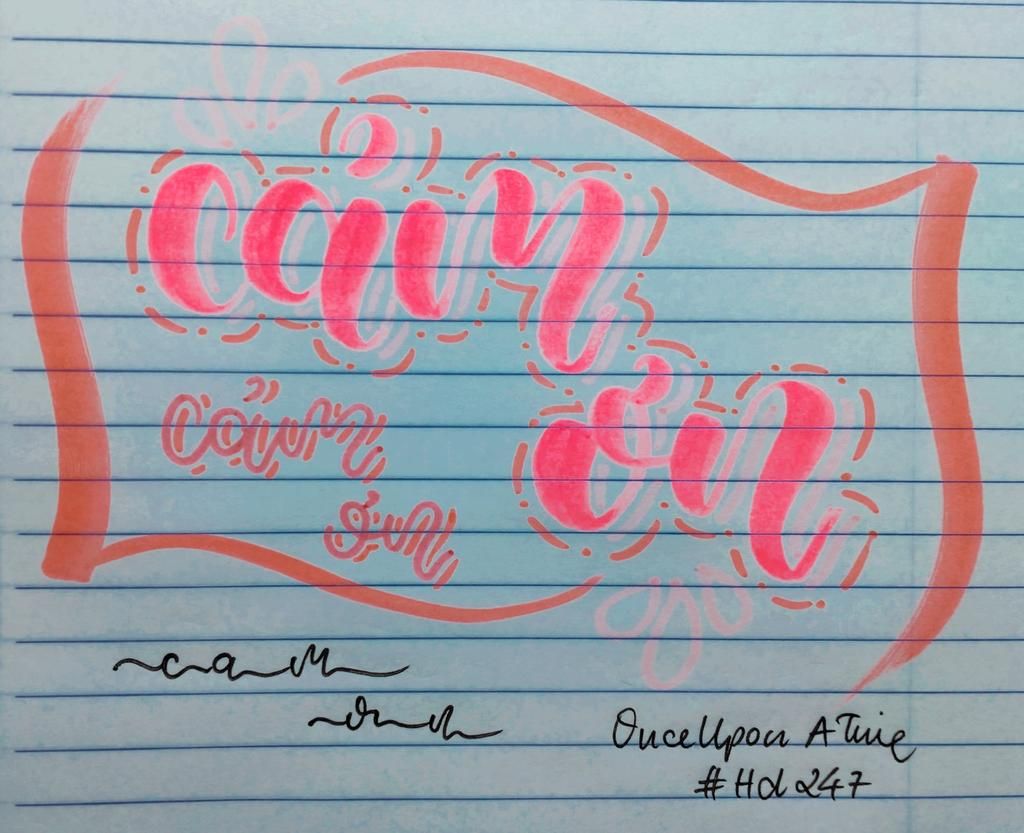 cảm
ơn
cảm
ơn
cam
ơn
OnceUpon A Time
#Hd 247